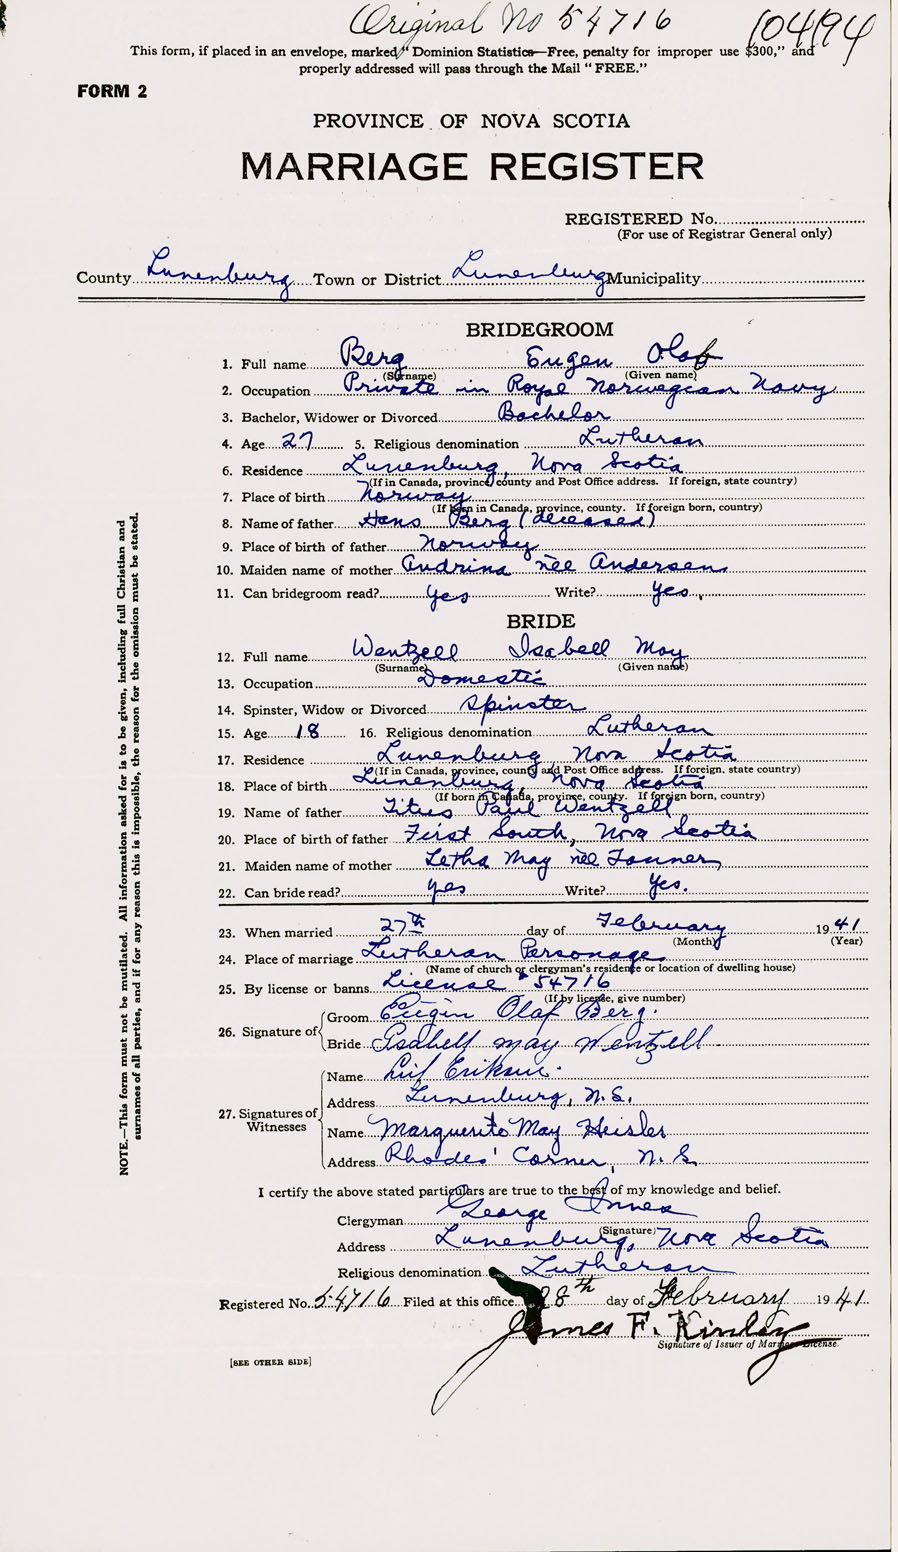 Original No 54716 104194
This form, if placed in an envelope, marked “Dominion Statistics—Free, penalty for improper use $300,” and
properly addressed will pass through the Mail “FREE.”
FORM 2
PROVINCE OF NOVA SCOTIA
MARRIAGE REGISTER
REGISTERED No.
(For use of Registrar General only)
County Lunenburg Town or District Lunenburg Municipality
BRIDEGROOM
1. Full name Berg Eugen Olaf
(Surname) (Given name)
2. Occupation Private in Royal Norwegian Navy
3. Bachelor, Widower or Divorced Bachelor
4. Age 27 5. Religious denomination Lutheran
6. Residence Lunenburg, Nova Scotia
(If in Canada, province, county and Post Office address. If foreign, state country)
7. Place of birth Norway
(If born in Canada, province, county. If foreign born, country)
8. Name of father Hans Berg (deceased)
9. Place of birth of father Norway
10. Maiden name of mother Andrina née Andersen
11. Can bridegroom read? Yes Write? Yes,
BRIDE
12. Full name Wentzell Isabell May
(Surname) (Given name)
13. Occupation Domestic
14. Spinster, Widow or Divorced Spinster
15. Age 18 16. Religious denomination Lutheran
17. Residence Lunenburg, Nova Scotia
(If in Canada, province, county and Post Office address. If foreign, state country)
18. Place of birth Lunenburg, Nova Scotia
(If born in Canada, province, county. If foreign born, country)
19. Name of father Titus Paul Wentzell
20. Place of birth of father First South, Nova Scotia
21. Maiden name of mother Letha May née Tanner
22. Can bride read? yes Write? Yes.
23. When married 27th day of February 1941
(Month) (Year)
24. Place of marriage Lutheran Parsonage
(Name of church or clergyman's residence or location of dwelling house)
25. By license or banns License 54716
(If by license, give number)
26. Signature of Groom Eugin Olaf Berg.
Bride Isabell may Wentzell
27. Signatures of Witnesses Name Leif
Address Lunenburg, N.S.
Name Marguerite May Heisler
Address Rhodes' Corner, N.S.
I certify the above stated particulars are true to the best of my knowledge and belief.
Clergyman George Innes
(Signature)
Address Lunenburg, Nova Scotia
Religious denomination Lutheran
Registered No. 54716 Filed at this office 28th day of February 1941.
James F. Kinley
Signature of Issuer of Marriage License
[SEE OTHER SIDE]
NOTE.—This form must not be mutilated. All information asked for is to be given, including full Christian and
surnames of all parties, and if for any reason this is impossible, the reason for the omission must be stated.